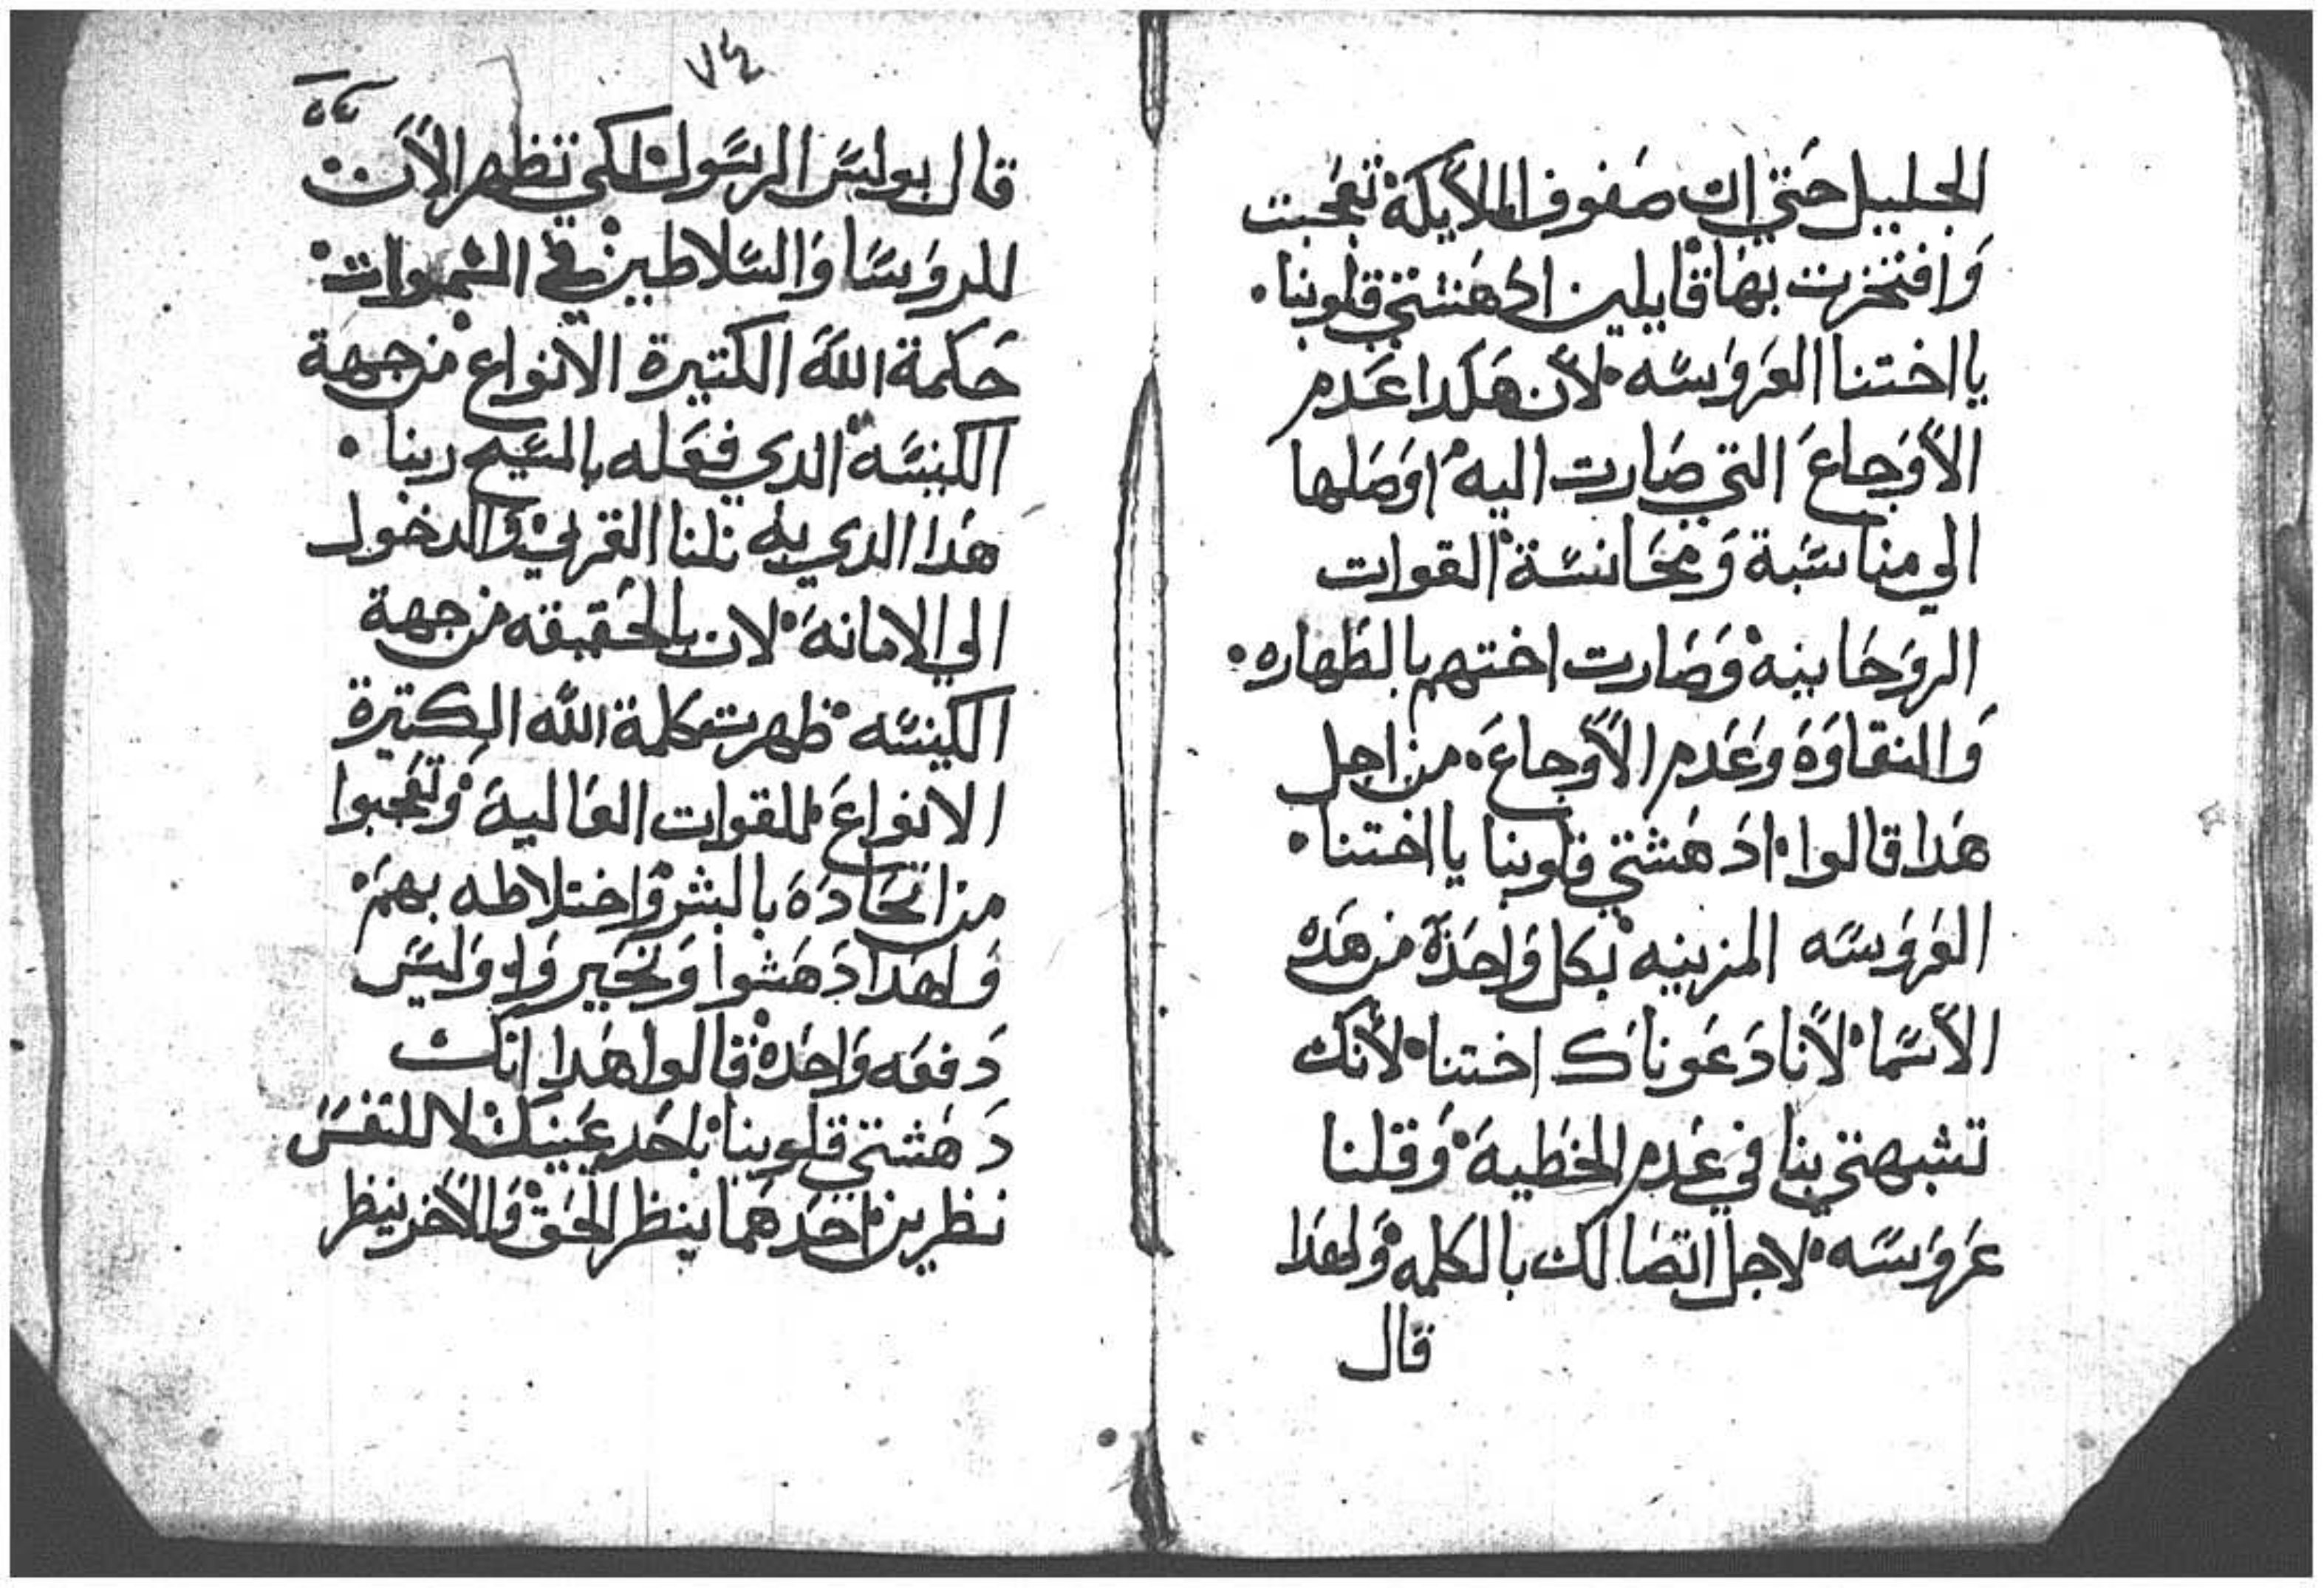 الجليل حتي ان صفوف الملايكة تعجبت
وافتخرت بها قايلين ادهشتي قلوبنا.
يا اختنا العروسه لأن هكدا عدم
الأوجاع التي صارت اليه اوصلها
الي مناسبة ومجانسة القوات
الروحانيه وصارت اختهم بالطهاره.
والنقاوة وعدم الأوجاع. من اجل
هدا قالوا ادهشتي قلوبنا يا اختنا.
العروسه المزينه بكل واحدة من هده
الأسما لأنا دعوناك اختنا لأنك
تشبهتي بنا في عدم الخطية وقلنا
عروسه لاجل اتصالك بالكلمه ولهدا
قال
٧٤
قال بولس الرسول لكي تظهر الأن
للروسا والسلاطين في السموات
حكمة الله الكتيرة الانواع من جهة
الكنيسة الدي فعله بالمسيح ربنا.
هدا الدي به نلنا القربي والدخول
الي الامانة لان بالحقيقه من جهة
الكنيسه ظهرت كلمة الله الكتيرة
الانواع للقوات العالية وتعجبوا
من اتحادة بالبشر واختلاطه بهم
ولهدا دهشوا وتحيروا وليس
دفعه واحدة قالوا هدا انك
دهشتي قلوبنا باحد عينيك لا للنفس
نظرين احدهما ينظر الحق والأخر ينظر